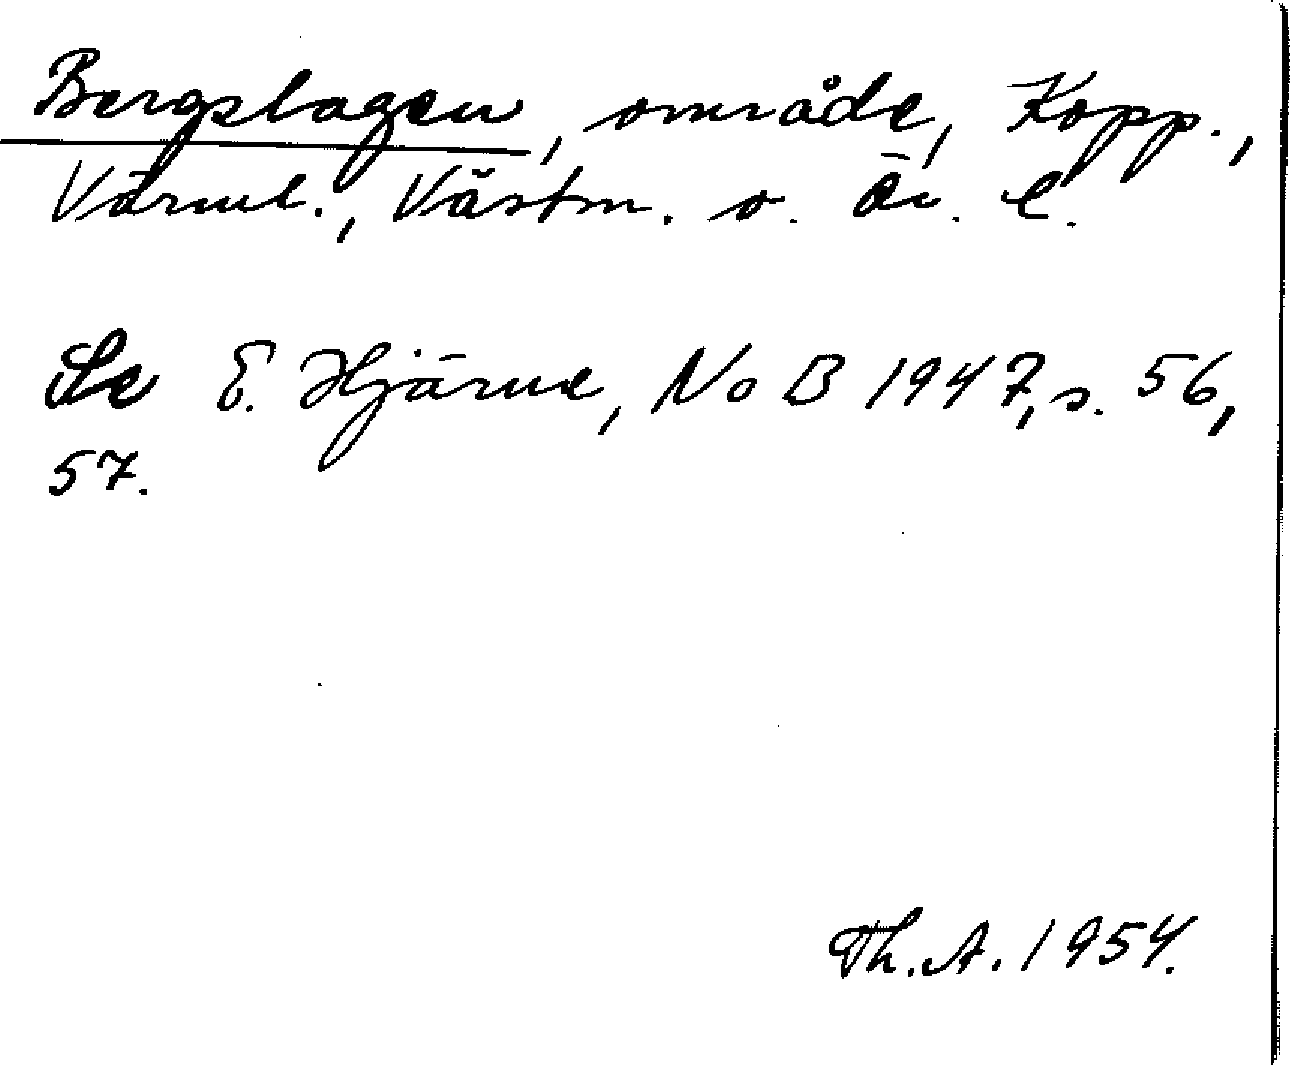 Bergslagen, område, Kopp.,
Värml., Västm. o. Ör. l.
Se E. Hjärne, NoB 1947, s. 56,
57.
Th. A. 1954.